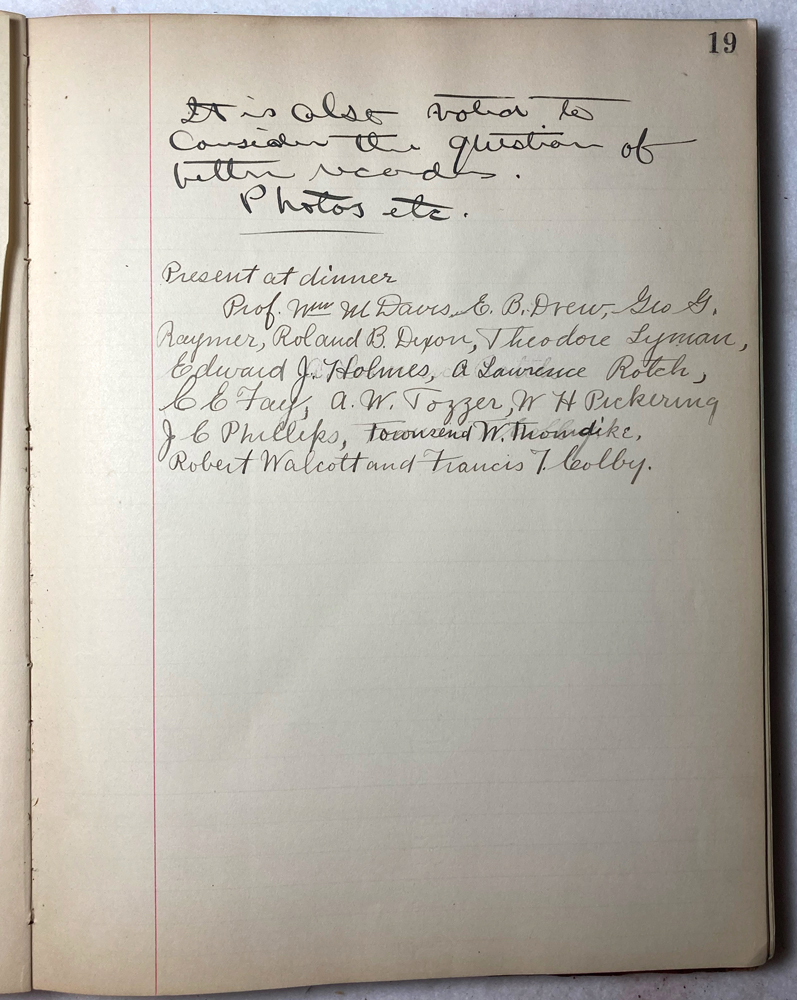 19
It is also voted to
Consider the question of
better records.
Photos etc.
Present at dinner
Prof. Wm M Davis, E. B. Drew, Geo G.
Raymer, Roland B. Dixon, Theodore Lyman,
Edward J. Holmes, A Lawrence Rotch,
C E Fay, A. W. Tozzer, W H Pickering
J C Phillips, Townsend W. Thorndike,
Robert Walcott and Francis T. Colby.